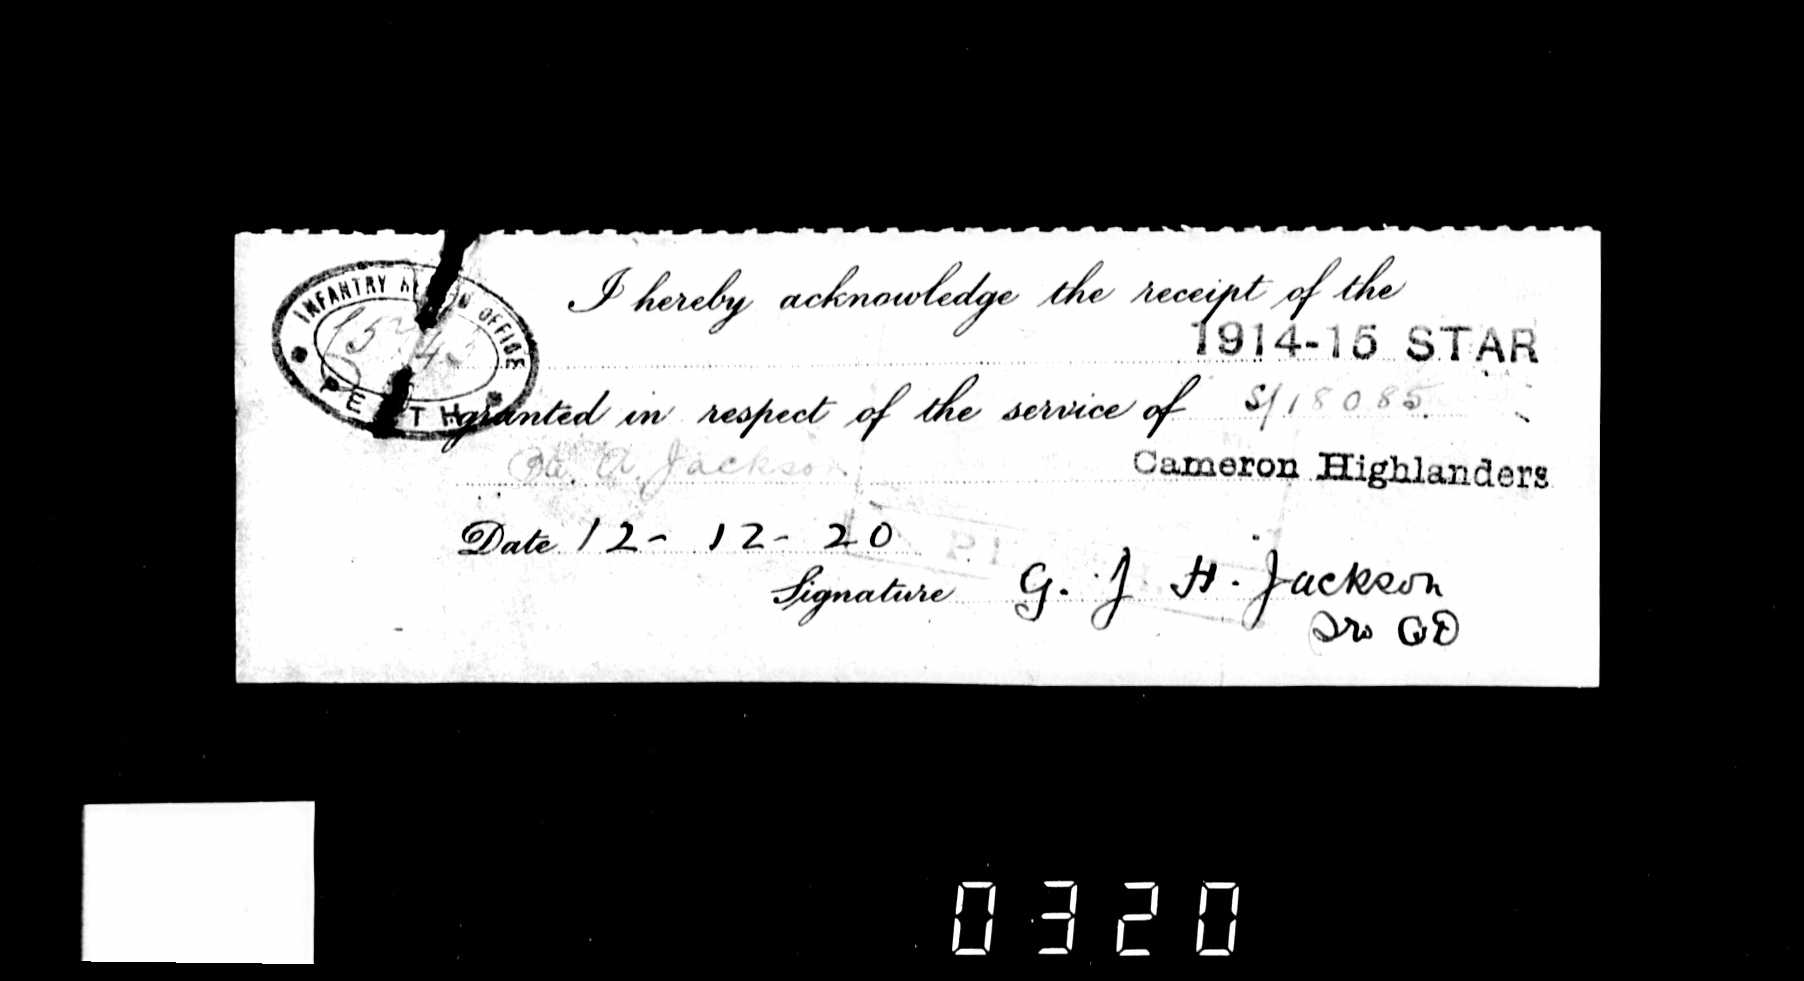 INFANTRY OFFICE
PERTH
I hereby acknowledge the receipt of the
1914-15 STAR
granted in respect of the service of S/18085
A. Jackson Cameron Highlanders
Date 12-12-20
Signature G. J H. Jackson
0320